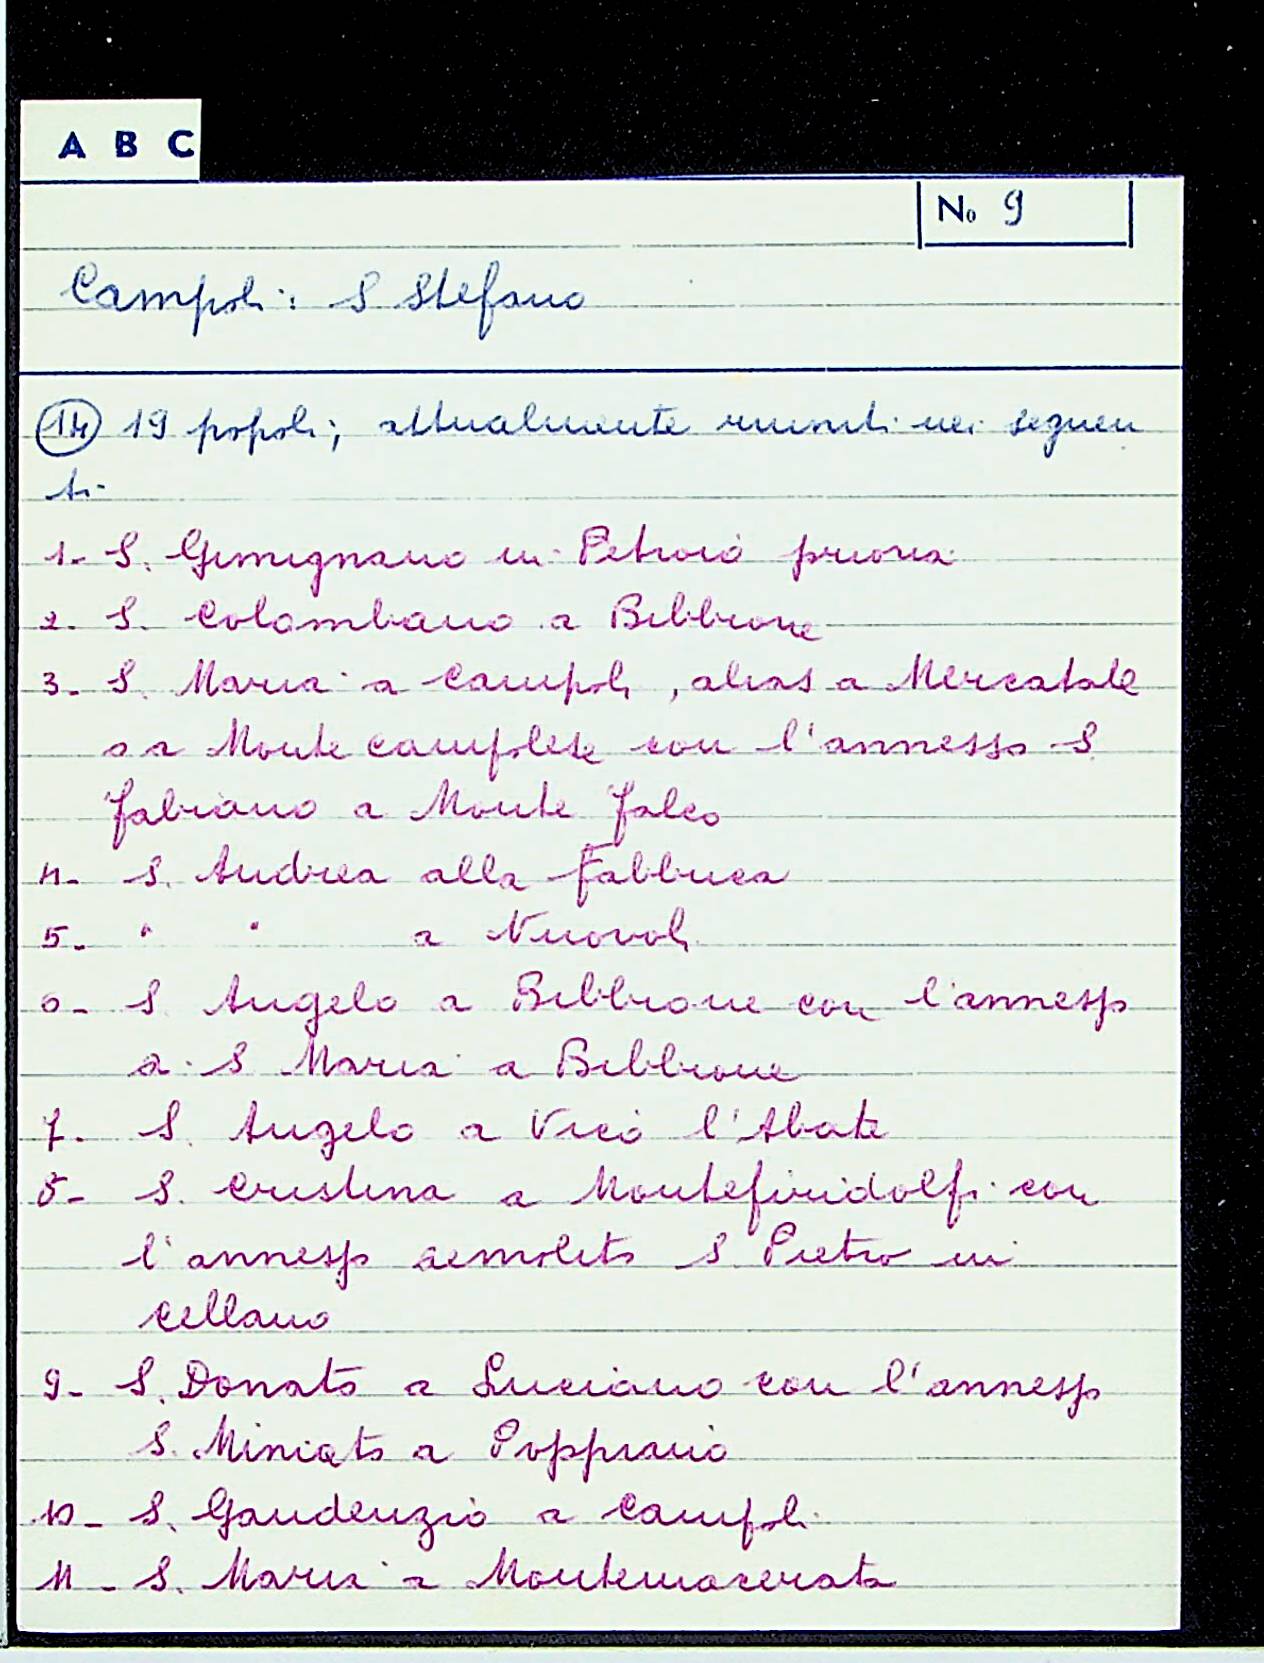 A B C
No 9
Campoli: S Stefano
14 19 popoli; attualmente riuniti nei seguen
ti
1- S. Gimignano in Petroio prioria
2. S. Colombano a Bibbione
3- S. Maria a Campoli, alias a Mercatale
o a Monte campolese con l'annesso S
Fabiano a Monte Falco
4- S. Andrea alla Fabbrica
5- " " a Nuovoli
6- S Angelo a Bibbione con l'annesso
a S Maria a Bibbione
7. S. Angelo a Vico l'Abate
8- S. Cristina a Montefiridolfi con
l'annesso demolito S Pietro in
cellano
9- S. Donato a Luciano con l'annesso
S. Miniato a Poppiano
10- S. Gaudenzio a Campoli
11- S. Maria a Montemacerata